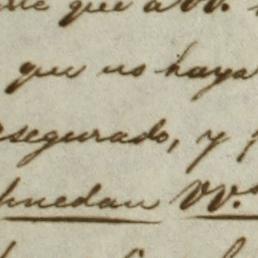 que a VV.
que no haya
segurado, y
quedan VV.s